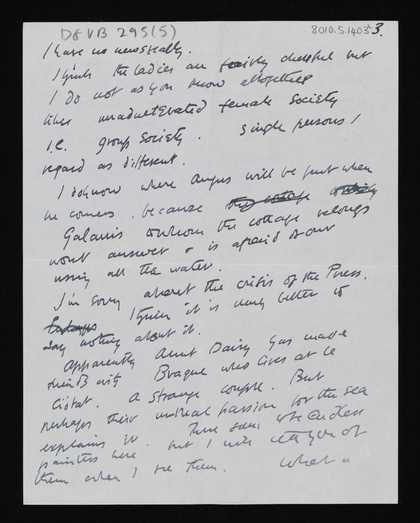 DG VB 295(5)
8010.5.1405 3.
I have no news really.
I think the ladies are fairly cheerful but
I do not as you know altogether
like unadulterated female society
i.e. group society. Single persons I
regard as different.
I dont know where Angus will be put when
he comes, because
Galanis to whom the cottage belongs
wont answer & is afraid of our
using all the water.
I'm sorry about the crisis of the Press.
I think it is really better to
say nothing about it.
Apparently Aunt Daisy has made
friends with Braque who lives at La
Ciotat. A strange couple. But
perhaps their undreal passion for the sea
explains it. There seem to be endless
painters here. but I will tell you of
them when I see them. What a